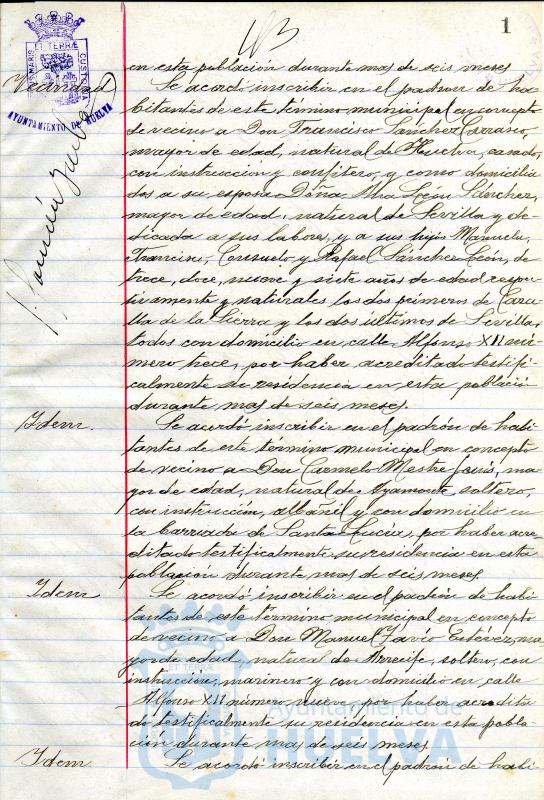 1
PORTUS MARIS ET TERRÆ CUSTODIA
AYUNTAMIENTO DE HUELVA
Vecindad
en esta población durante mas de seis meses
Se acordó inscribir en el padrón de ha-
bitantes de este término municipal en concepto
de vecino a Don Francisco Sánchez Carrasco,
mayor de edad, natural de Huelva, casado,
con instrucción y confitero, y como domicilia
dos a su esposa Doña Ana León Sánchez,
mayor de edad, natural de Sevilla y de-
dicada a sus labores, y a sus hijos Manuela,
Francisco, Consuelo y Rafael Sánchez León, de
trece, doce, nueve y siete años de edad respec-
tivamente y naturales los dos primeros de
la de la Sierra y los dos últimos de Sevilla,
todos con domicilio en calle Alfonso XII nú-
mero trece, por haber acreditado testifi-
calmente su residencia en esta població
durante mas de seis meses.
Idem.
Se acordó inscribir en el padrón de habi-
tantes de este término municipal en concepto
de vecino a Don Carmelo Mestre, ma-
yor de edad, natural de Ayamonte, soltero,
con instrucción, albañil y con domicilio en
la Barriada de Santa Lucía, por haber acre-
ditado testificalmente su residencia en esta
población durante mas de seis meses.
Idem
Se acordó inscribir en el padrón de habi-
tantes de este término municipal en concepto
de vecino a Don Manuel Estévez, ma-
yor de edad, natural de Arrecife, soltero, con
instrucción, marinero y con domicilio en calle
Alfonso XII número nueve, por haber acredita
do testificalmente su residencia en esta pobla-
ción durante mas de seis meses.
Idem.
Se acordó inscribir en el padrón de habi-
Ayuntamiento de
HUELVA